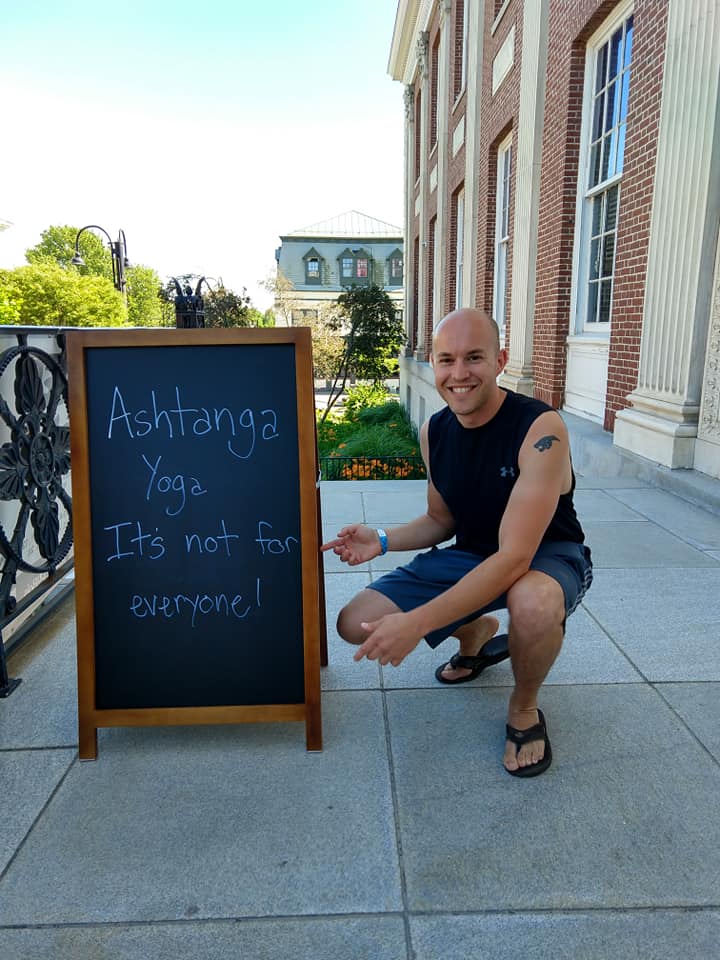 Ashtanga
Yoga
It's not for
everyone!